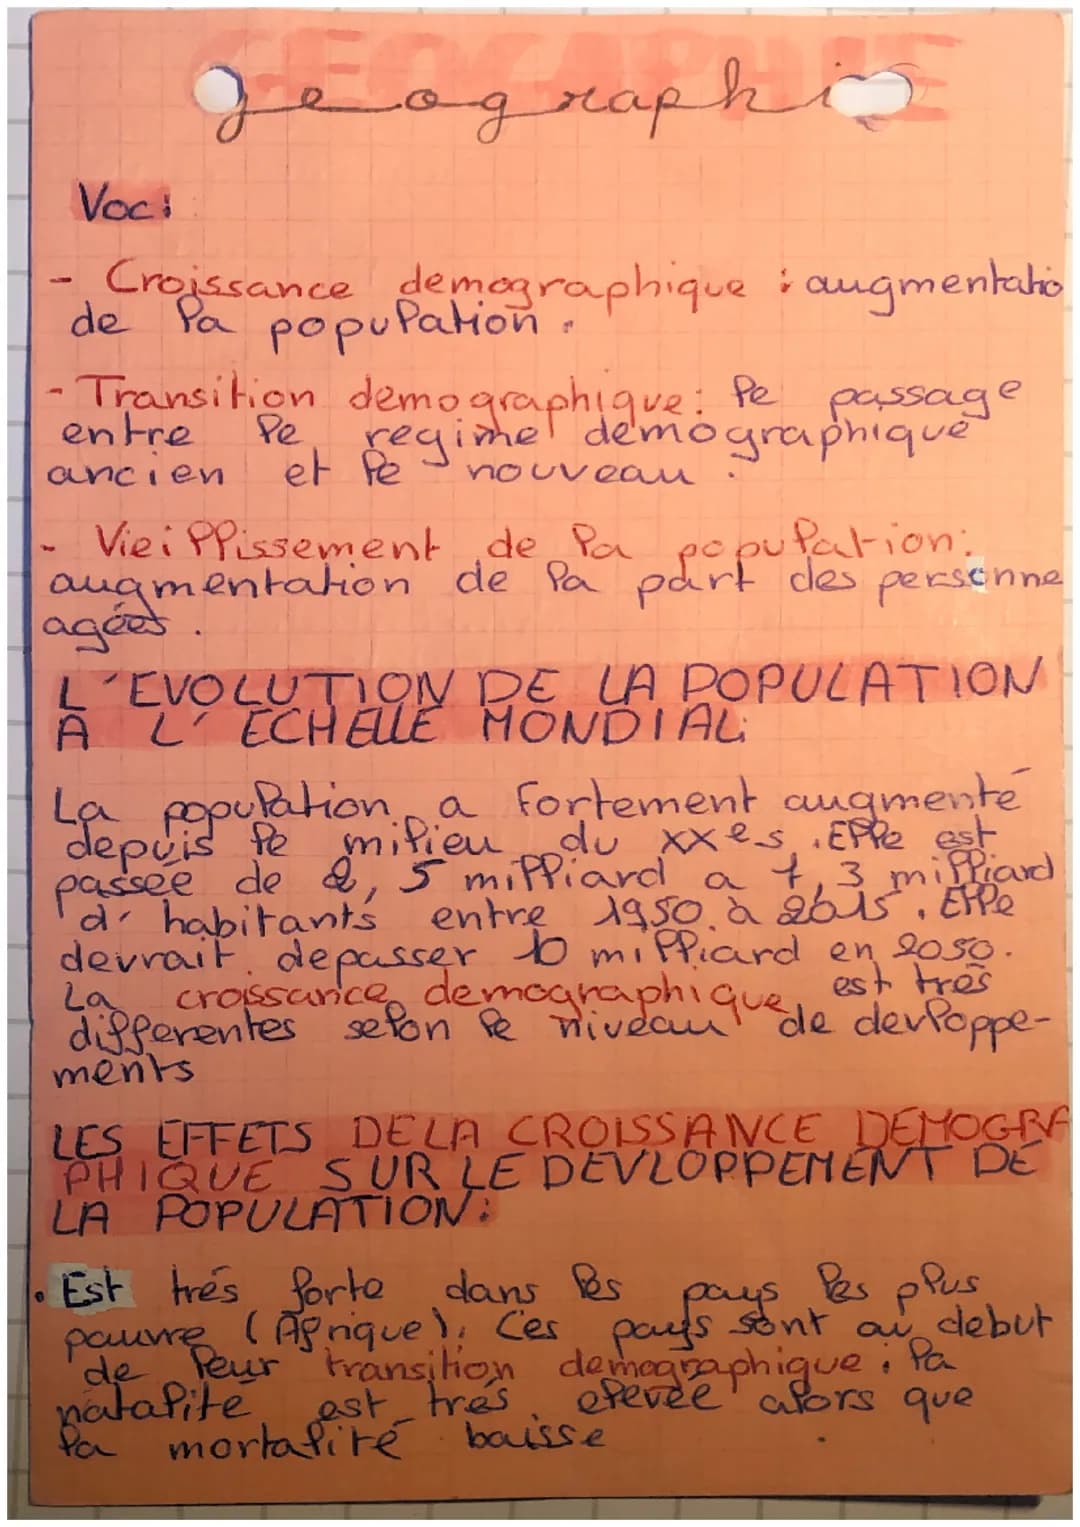 GEOGRAPHIE
geographi
Voc:
- Croissance demographique : augmentatio
de la population.
- Transition demographique: le passage
entre le regime demographique
ancien et le nouveau.
- Vieillissement de la population:
augmentation de la part des personne
agées.
L'EVOLUTION DE LA POPULATION
A L'ECHELLE MONDIAL:
La population a fortement augmenté
depuis le milieu du XXes. Elle est
passée de 2,5 milliard a 7,3 milliard
d'habitants entre 1950 à 2015. Elle
devrait depasser 10 milliard en 2050.
La croissance demographique est très
differentes selon le niveau de devloppe-
ments
LES EFFETS DE LA CROISSANCE DEMOGRA
PHIQUE SUR LE DEVLOPPEMENT DE
LA POPULATION:
• Est trés forte dans les pays les plus
pauvre (Afrique). Ces pays sont au debut
de leur transition demographique : la
natalité est trés elevée alors que
la mortalité baisse.